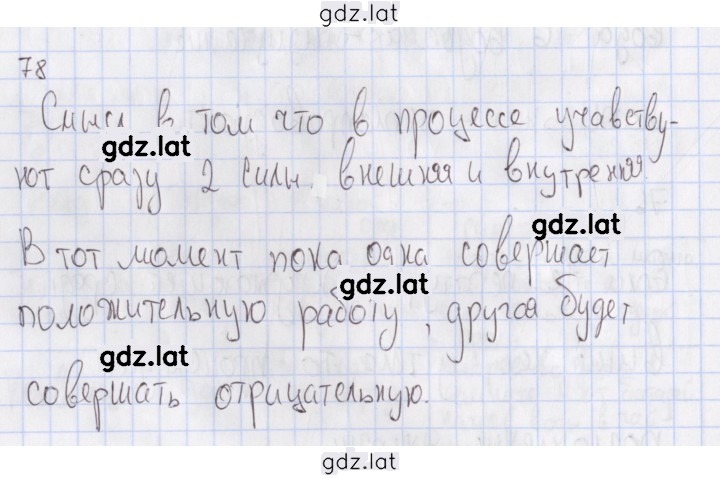 gdz.lat
78
Смысл в том что в процессе учавству-
gdz.lat
ют сразу 2 силы внешняя и внутренняя.
gdz.lat
В тот момент пока одна совершает
gdz.lat
положительную работу, другая будет
gdz.lat
совершать отрицательную.
gdz.lat